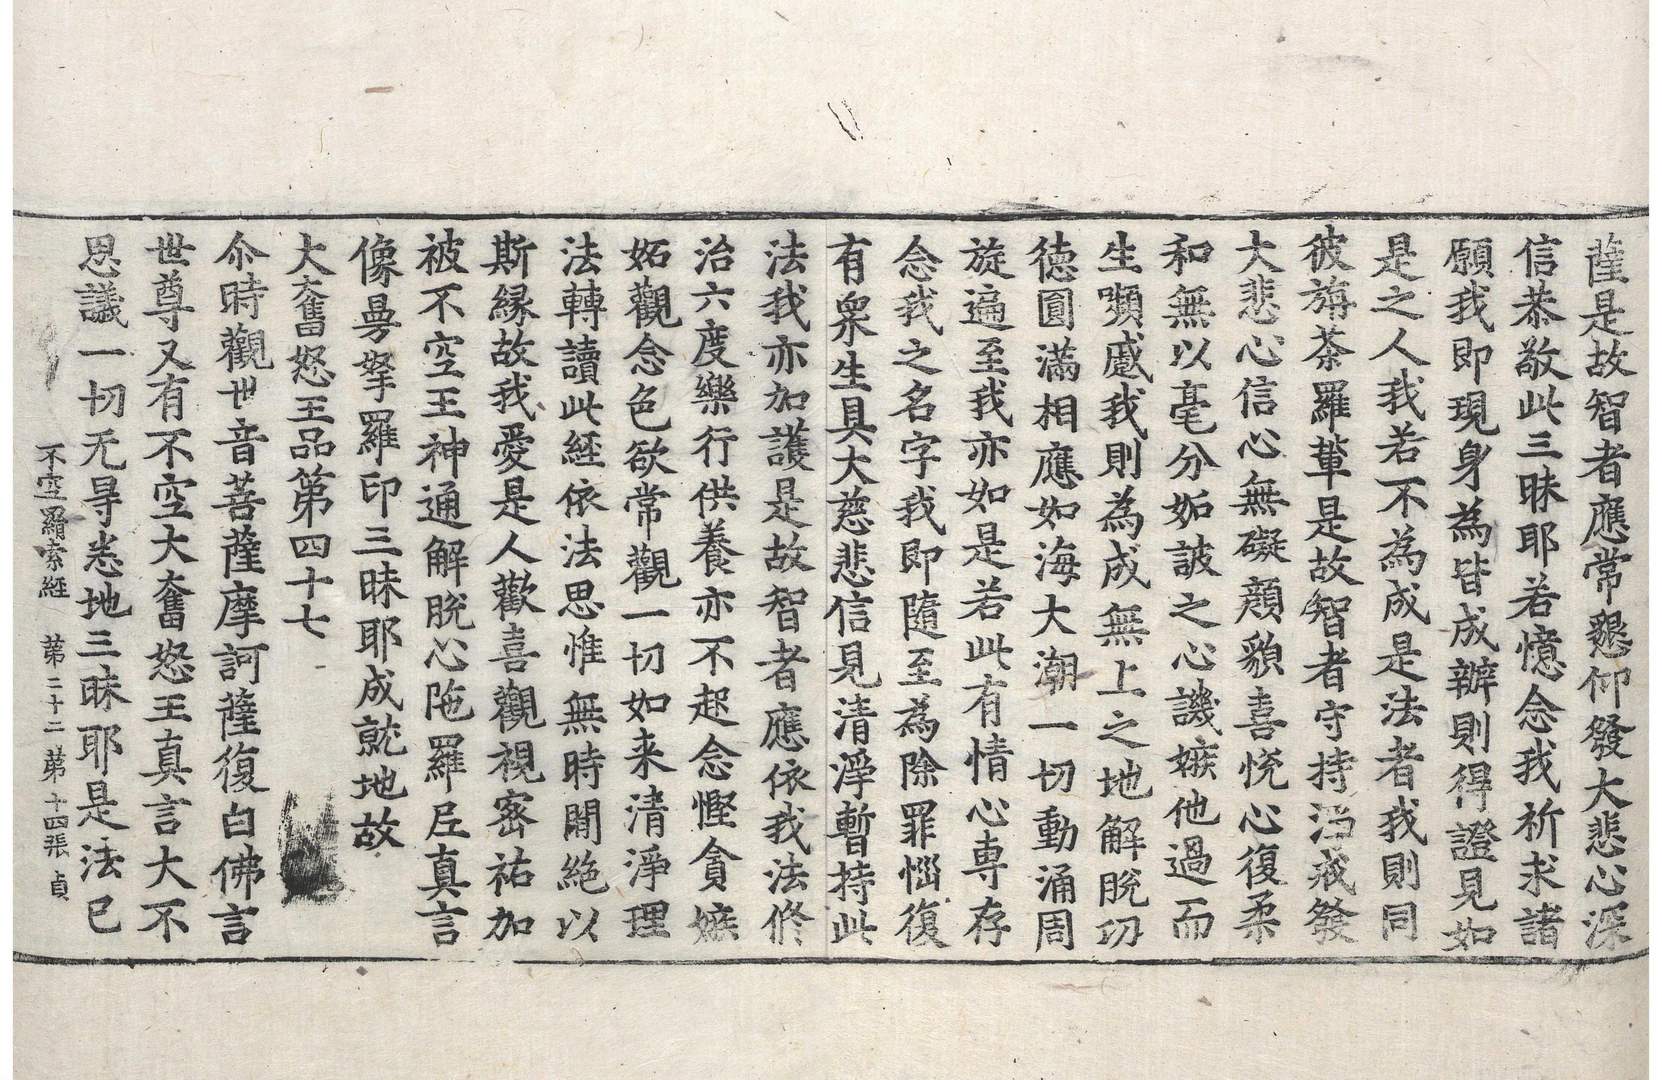 薩是故智者應常懇仰發大悲心深
信恭敬此三昧耶若憶念我祈求諸
願我即現身為皆成辦則得證見如
是之人我若不為成是法者我則同
彼旃荼羅輩是故智者守持淨戒發
大悲心信心無礙顏貌喜悅心復柔
和無以毫分妬詖之心譏嫉他過而
生嚬蹙我則為成無上之地解脫功
德圓滿相應如海大潮一切動涌周
旋遍至我亦如是若此有情心專存
念我之名字我即隨至為除罪惱復
有衆生具大慈悲信見清淨暫持此
法我亦加護是故智者應依我法修
治六度樂行供養亦不起念慳貪嫉
妬觀念色欲常觀一切如来清淨理
法轉讀此經依法思惟無時閒絶以
斯縁故我愛是人歡喜觀視密祐加
被不空王神通解脫心陁羅尼真言
像曼拏羅印三昧耶成就地故
大奮怒王品第四十七
尒時觀世音菩薩摩訶薩復白佛言
世尊又有不空大奮怒王真言大不
思議一切无㝵悉地三昧耶是法已
不空羂索經　第二十二　第十四張　貞